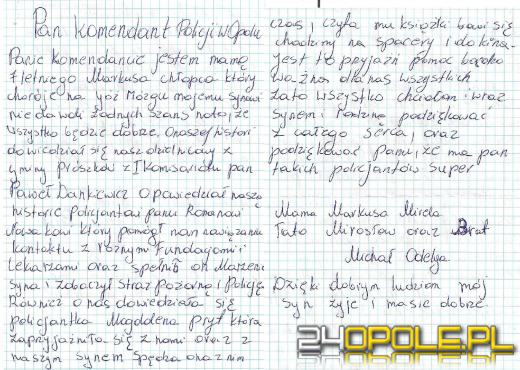 Pan Komendant Policji w Opolu
Panie Komendancie jestem mamą
7 letniego Markusa chłopca który
choruje na guz Mózgu mojemu synowi
nie dawali żadnych szans na to, że
wszystko będzie dobrze. O naszej histori
dowiedział się nasz dzielnicowy z
gminy Prószków z I Komisariatu pan
Paweł Dankiewicz opowiedział naszą
historie policjantów panu Romanowi
Nowakowi który pomógł nam nawiązaniu
kontaktu z różnymi Fundacjami i
Lekarzami oraz spełnił on Marzenie
Syna i zobaczył Straż Pożarną i Policję
Również o nas dowiedziała się
policjantka Magdalena Pryt która
zaprzyjaźniła się z nami oraz z
naszym synem Spędza ona z nim
czas, czyta mu książki bawi się
chodzimy na spacery i do kina.
Jest to przyjaźń pomoc bardzo
ważna dla nas wszystkich
Za to wszystko chciałam wraz
Synem i Rodziną podziękować
z całego serca, oraz
podziękować Panu, że ma pan
takich policjantów super
Mama Markusa Mirela
Tato Mirosław oraz Brat
Michał Odelga
Dzięki dobrym ludziom mój
syn żyje i ma się dobrze
24OPOLE.PL